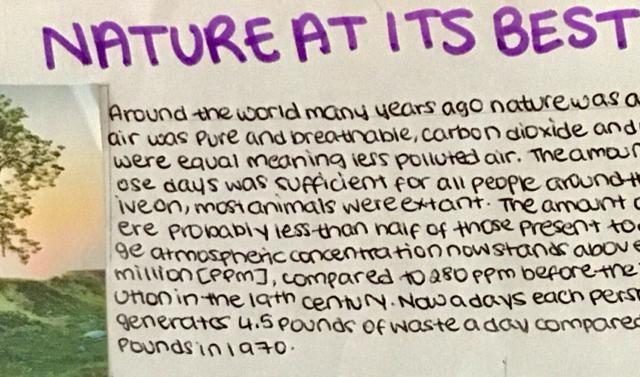 NATURE AT ITS BEST
Around the world many years ago nature was a
air was pure and breathable, carbon dioxide and
were equal meaning less polluted air. The amoun
ose days was sufficient for all people around th
ive on, most animals were extant. The amount o
ere probably less than half of those present to
ge atmospheric concentration now stands above
million [PPm], compared to 280 ppm before the
ution in the 19th century. Nowadays each pers
generates 4.5 pounds of waste a day compared
pounds in 1970.